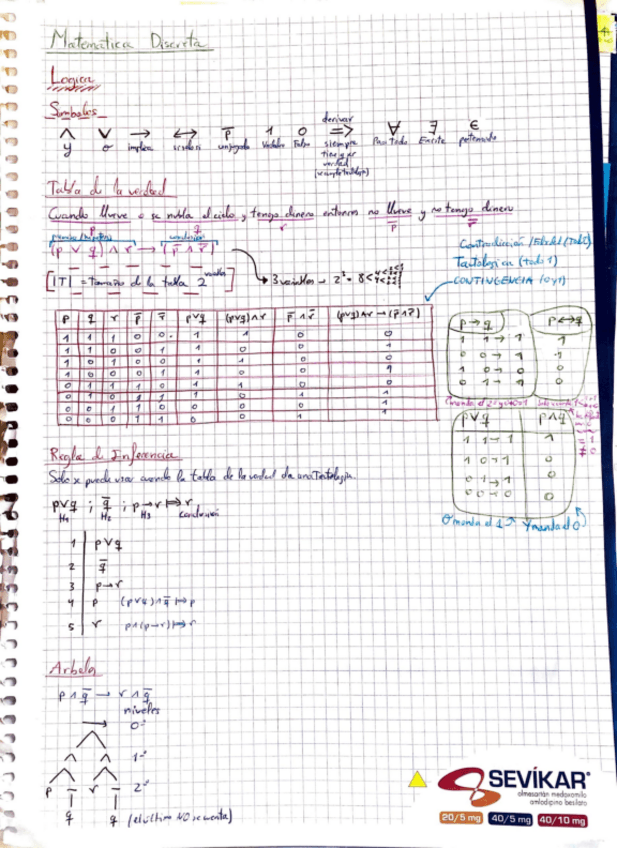 Matemática Discreta
Logica
Simbolos
∧ ∨ → ↔ p̅ 1 0 derivar => ∀ ∃ ∈
y o implica conjugado Verdadero Falso siempre Para Todo Existe pertenece
tiene que ser verdad
Tabla de la verdad
Cuando llueve o se nubla el cielo y tengo dinero entonces no llueve y no tengo dinero
p q r p̅ r̅
(p ∨ q) ∧ r → (p̅ ∧ r̅)
[|T| = Tamaño de la tabla 2 variables] → 3 variables → 2³ = 8
Contradicción / (todo 0)
Tautologica (todo 1)
CONTINGENCIA (0 y 1)
p q r p̅ r̅ p∨q (p∨q)∧r p̅∧r̅ (p∨q)∧r → (p̅∧r̅)
1 1 1 0 0 1 1 0 0
1 1 0 0 1 1 0 0 1
1 0 1 0 0 1 1 0 0
1 0 0 0 1 1 0 0 1
0 1 1 1 0 1 1 0 0
0 1 0 1 1 1 0 1 1
0 0 1 1 0 0 0 0 1
0 0 0 1 1 0 0 1 1
p→q p↔q
1 1→1 1
0 0→1 1
1 0→0 0
0 1→1 0
p∨q p∧q
1 1→1 1
1 0→1 0
0 1→1 0
0 0→0 0
O manda el 1 Y manda el 0
Regla de Inferencia
Solo se puede usar cuando la tabla de la verdad da una Tautología.
p∨q ; q̅ ; p→r ⟼ r
H₁ H₂ H₃ conclusión
1 p∨q
2 q̅
3 p→r
4 p (p∨q)∧q̅ ⟼ p
5 r p∧(p→r) ⟼ r
Arboles
p∧q̅ → r∧q̅
niveles
→ 0º
∧ ∧ 1º
p — r — 2º
q q (el último NO se cuenta)
SEVÍKAR®
olmesartán medoxomilo
amlodipino besilato
20/5 mg 40/5 mg 40/10 mg